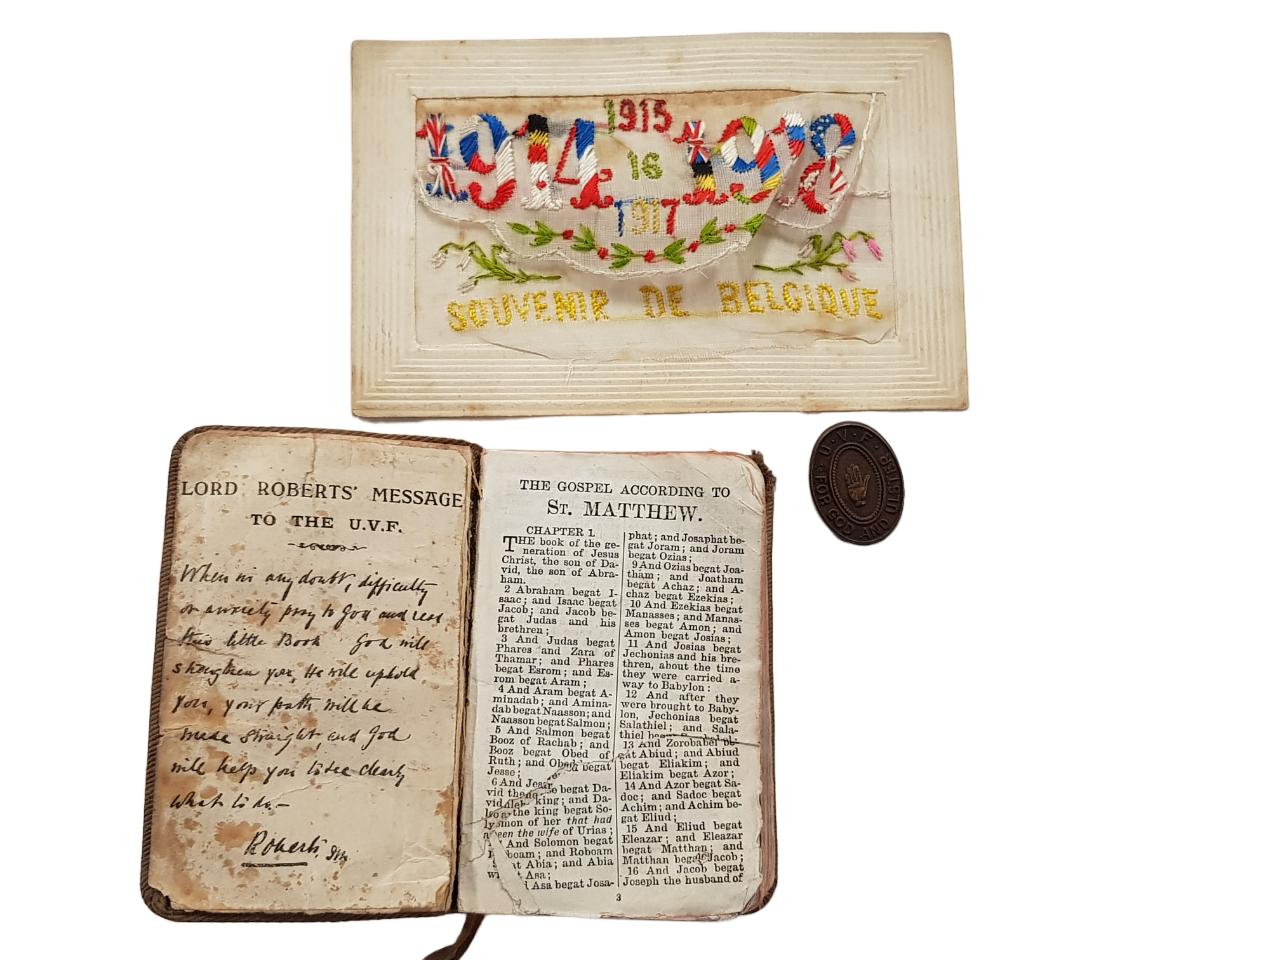 1915
1914 1918
16
1917
SOUVENIR DE BELGIQUE
LORD ROBERTS' MESSAGE
TO THE U.V.F.
When in any doubt, difficulty
or anxiety pray to God and read
this little Book God will
strengthen you, He will uphold
you, your path will be
made straight, and God
will help you to see clearly
what to do—
Roberts, FM
THE GOSPEL ACCORDING TO
ST. MATTHEW.
CHAPTER 1.
THE book of the ge-
neration of Jesus
Christ, the son of Da-
vid, the son of Abra-
ham.
2 Abraham begat I-
saac; and Isaac begat
Jacob; and Jacob be-
gat Judas and his
brethren;
3 And Judas begat
Phares and Zara of
Thamar; and Phares
begat Esrom; and Es-
rom begat Aram;
4 And Aram begat A-
minadab; and Amina-
dab begat Naasson; and
Naasson begat Salmon;
5 And Salmon begat
Booz of Rachab; and
Booz begat Obed of
Ruth; and Obed begat
Jesse;
6 And Jesse
vid the begat Da-
vid king; and Da-
the king begat So-
lomon of her that had
been the wife of Urias;
And Solomon begat
boam; and Roboam
at Abia; and Abia
Asa;
Asa begat Josa-
phat; and Josaphat be-
gat Joram; and Joram
begat Ozias;
9 And Ozias begat Joa-
tham; and Joatham
begat Achaz; and A-
chaz begat Ezekias;
10 And Ezekias begat
Manasses; and Manas-
ses begat Amon; and
Amon begat Josias;
11 And Josias begat
Jechonias and his bre-
thren, about the time
they were carried a-
way to Babylon:
12 And after they
were brought to Baby-
lon, Jechonias begat
Salathiel; and Sala-
thiel
13 And Zorobabel
gat Abiud; and Abiud
begat Eliakim; and
Eliakim begat Azor;
14 And Azor begat Sa-
doc; and Sadoc begat
Achim; and Achim be-
gat Eliud;
15 And Eliud begat
Eleazar; and Eleazar
begat Matthan; and
Matthan begat Jacob;
16 And Jacob begat
Joseph the husband of
3
U.V.F.
FOR GOD AND ULSTER